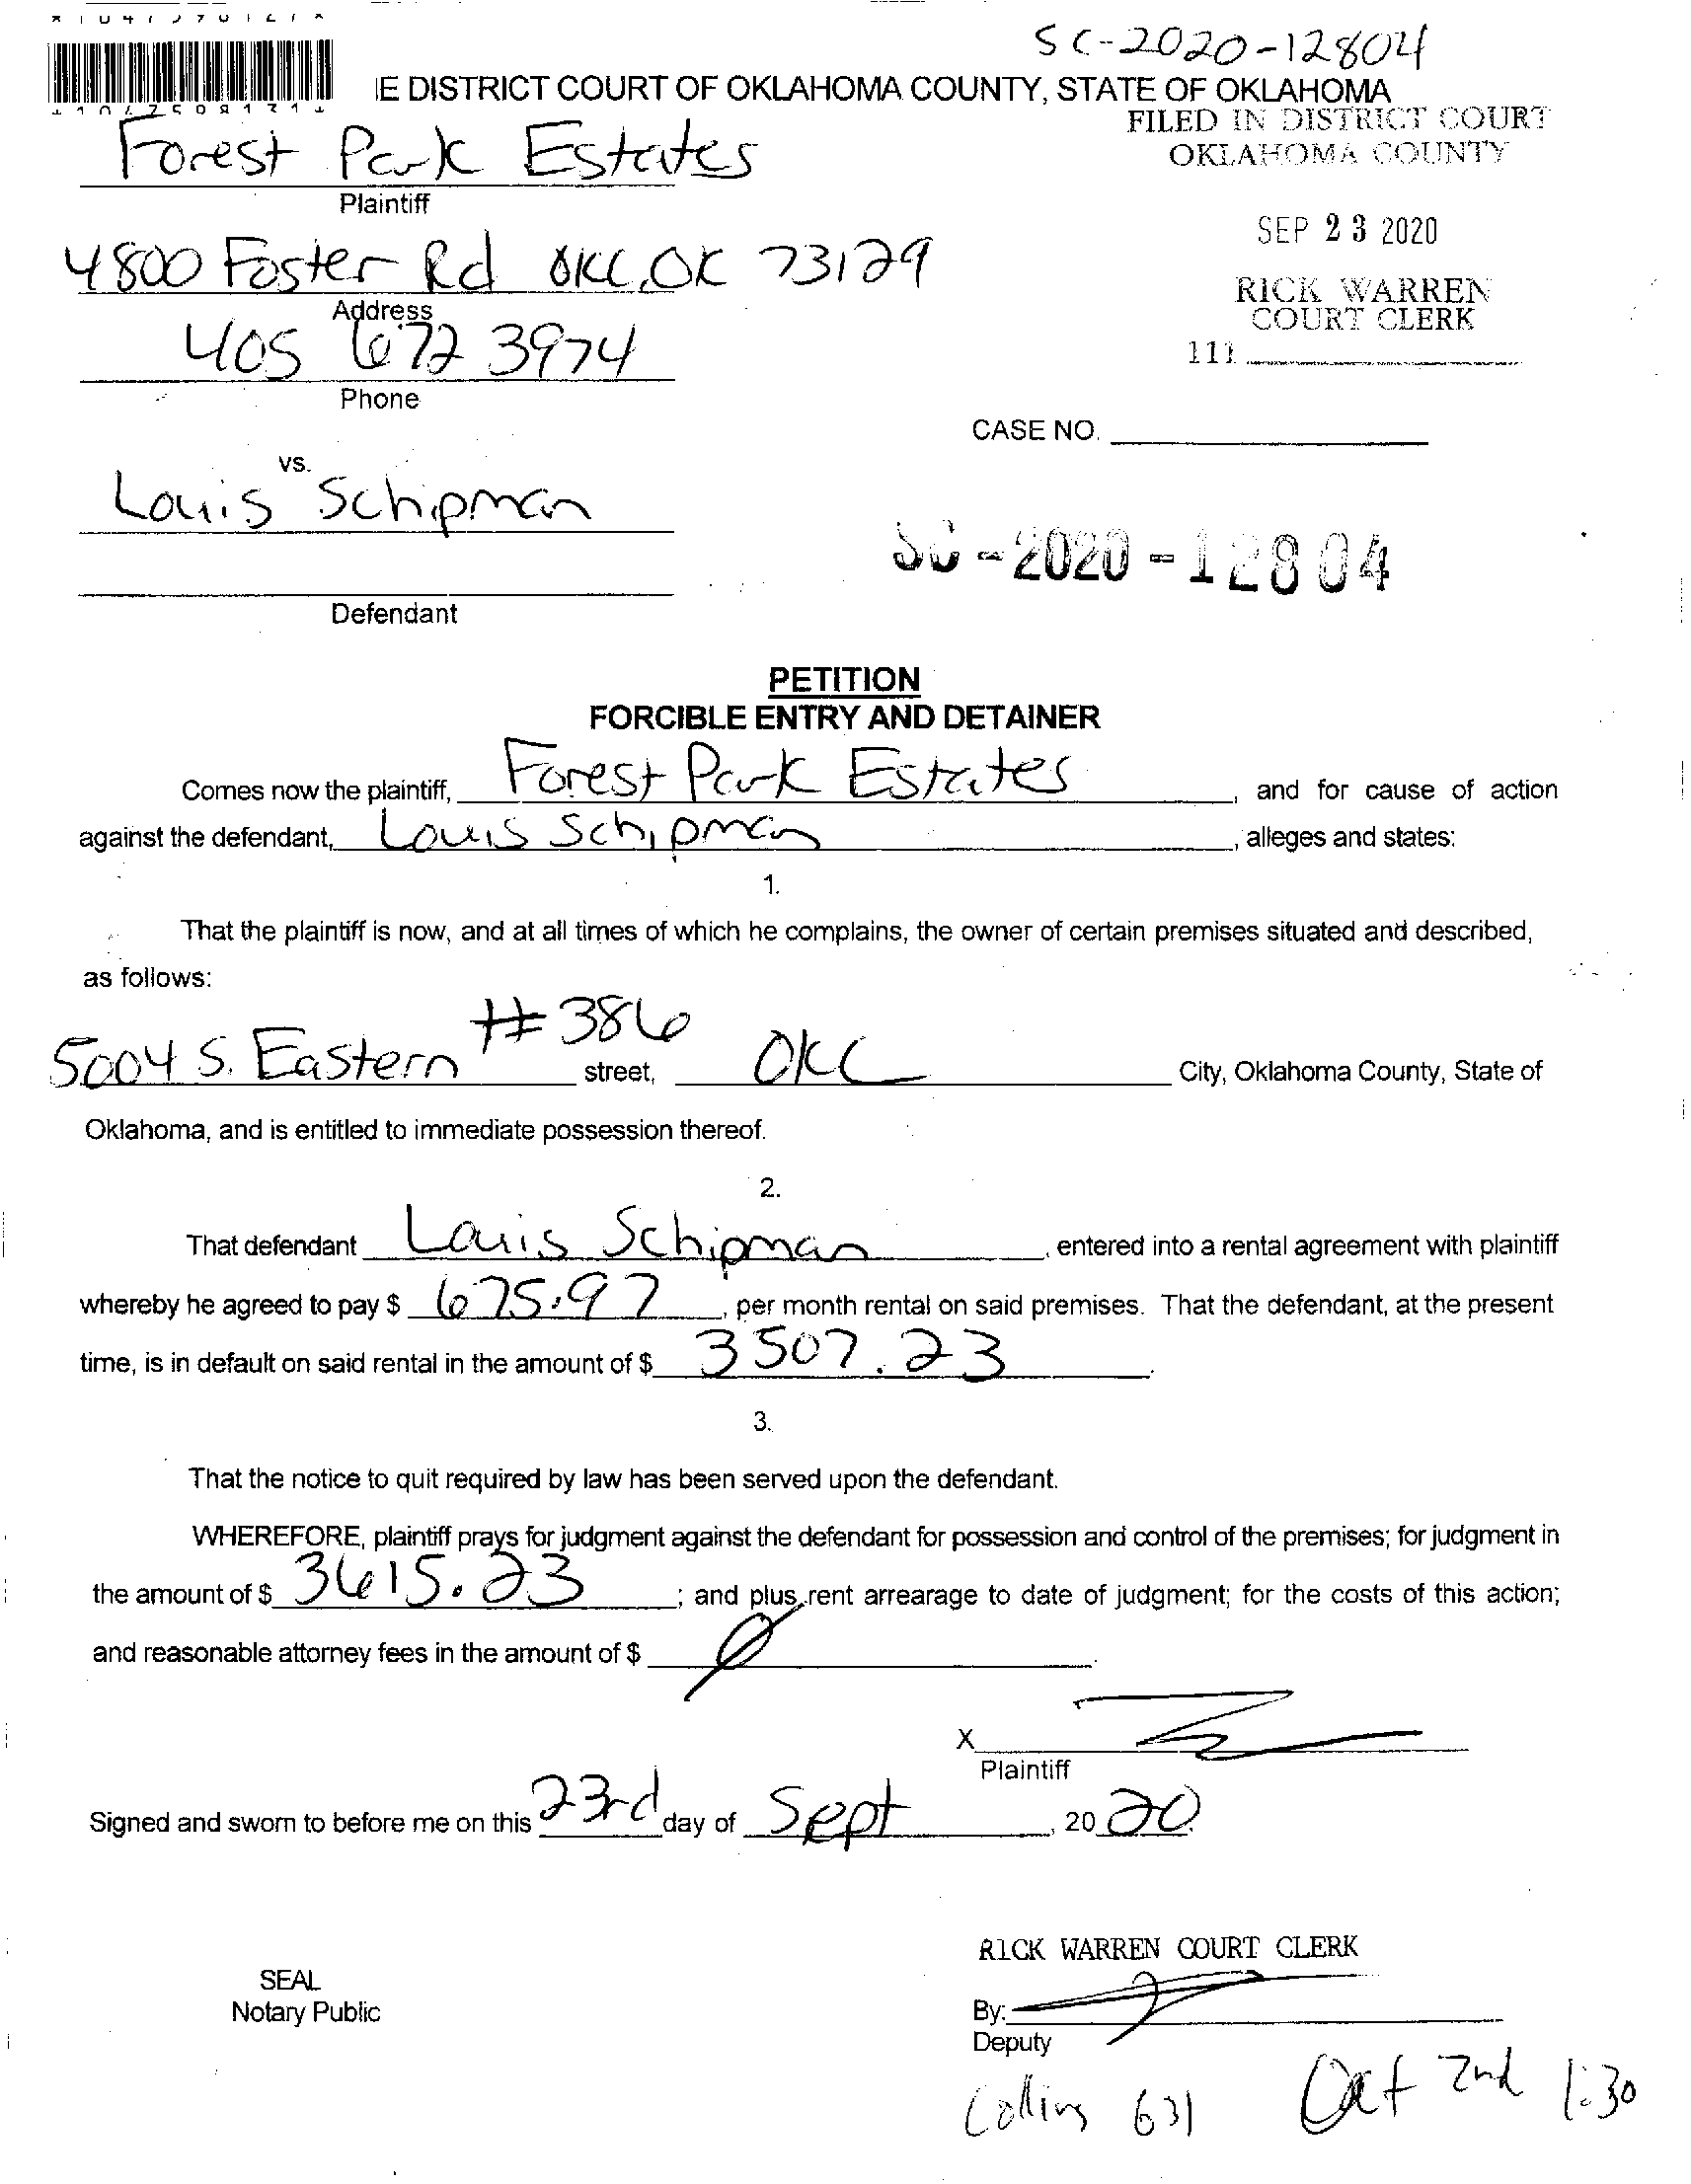 SC-2020-12804
IE DISTRICT COURT OF OKLAHOMA COUNTY, STATE OF OKLAHOMA
FILED IN DISTRICT COURT
OKLAHOMA COUNTY
Forest Park Estates
Plaintiff
SEP 23 2020
4800 Foster Rd OKC, OK 73129
Address
RICK WARREN
COURT CLERK
405 672 3974
111
Phone
CASE NO.
vs.
Louis Schipman
SC-2020-12804
Defendant
PETITION
FORCIBLE ENTRY AND DETAINER
Comes now the plaintiff, Forest Park Estates, and for cause of action
against the defendant, Louis Schipman, alleges and states:
1.
That the plaintiff is now, and at all times of which he complains, the owner of certain premises situated and described,
as follows:
5004 S. Eastern #386 street, OKC City, Oklahoma County, State of
Oklahoma, and is entitled to immediate possession thereof.
2.
That defendant Louis Schipman, entered into a rental agreement with plaintiff
whereby he agreed to pay $ 675.97, per month rental on said premises. That the defendant, at the present
time, is in default on said rental in the amount of $ 3507.23.
3.
That the notice to quit required by law has been served upon the defendant.
WHEREFORE, plaintiff prays for judgment against the defendant for possession and control of the premises; for judgment in
the amount of $ 3615.23; and plus rent arrearage to date of judgment; for the costs of this action;
and reasonable attorney fees in the amount of $ 0.
X
Plaintiff
Signed and sworn to before me on this 23rd day of Sept, 2020.
RICK WARREN COURT CLERK
SEAL
Notary Public
By:
Deputy
Collins 631 Oct 2nd 1:30